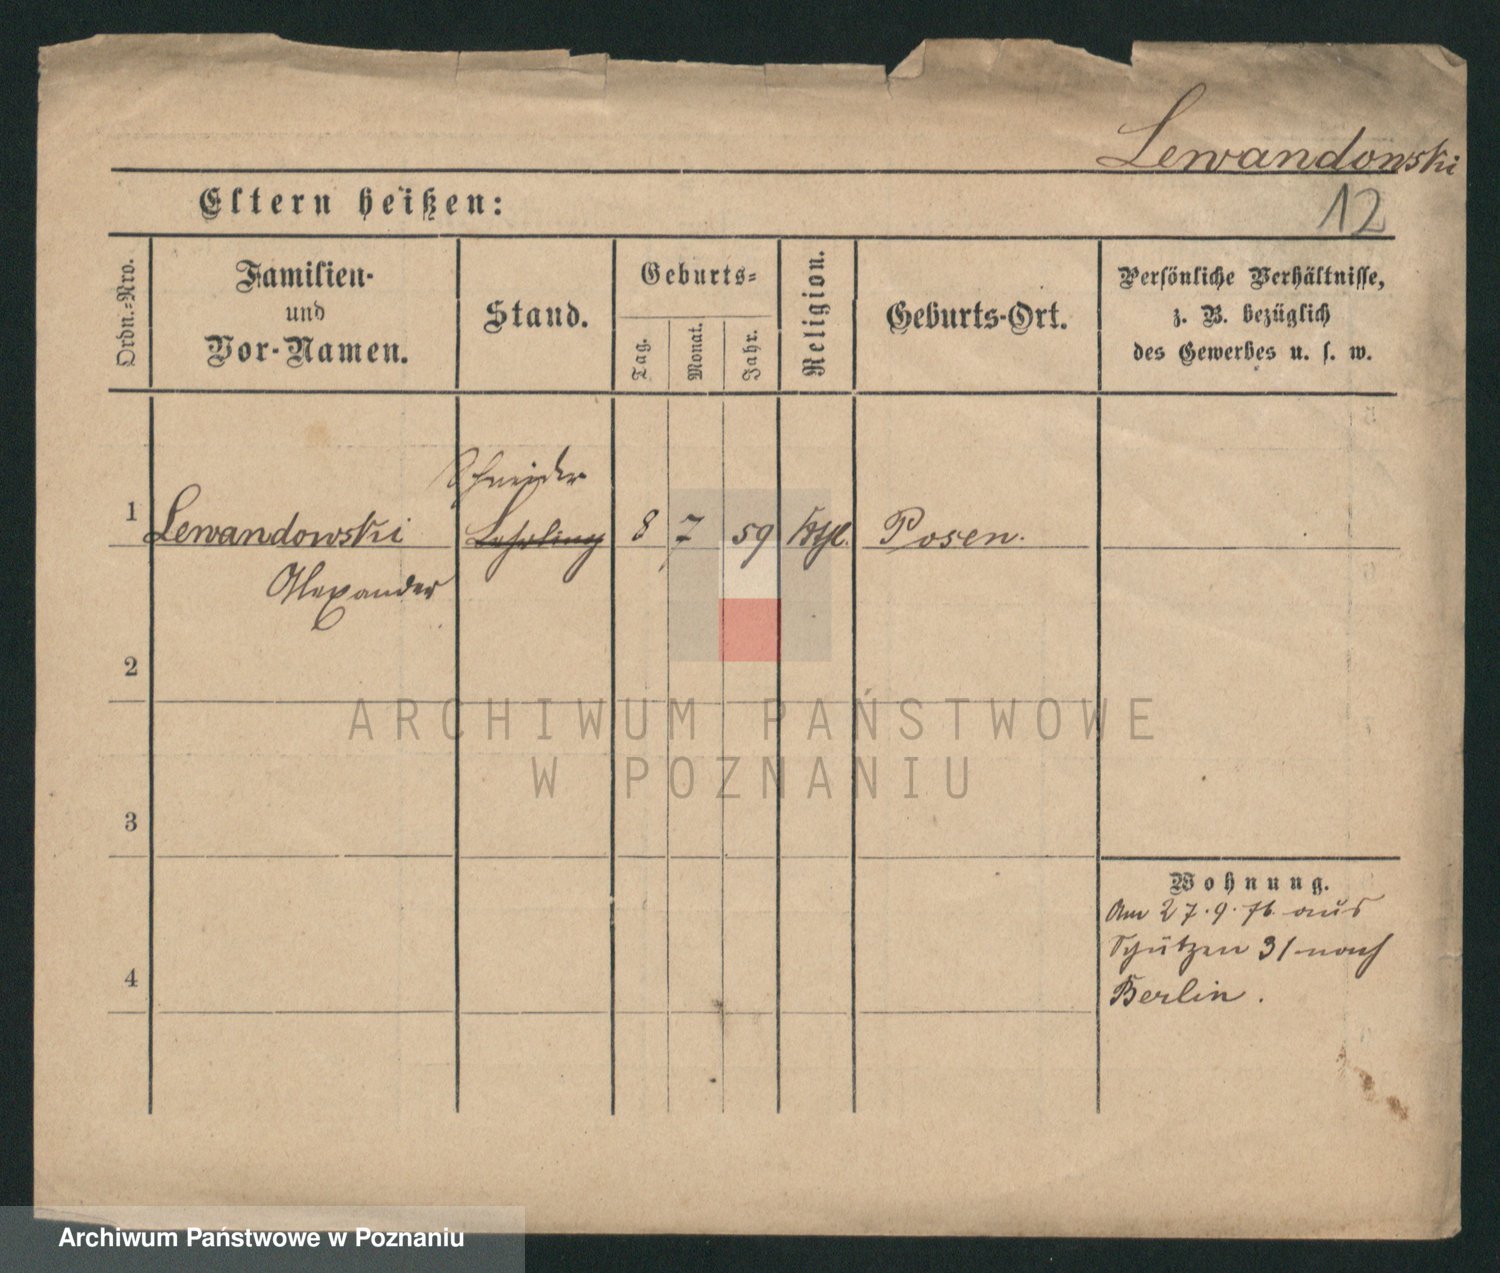 Lewandowski
12
Eltern heißen:
Ordn.-Nro.
Familien-
und
Vor-Namen.
Stand.
Geburts-
Tag.
Monat.
Jahr.
Religion.
Geburts-Ort.
Persönliche Verhältnisse,
z. B. bezüglich
des Gewerbes u. s. w.
Schneider
1 Lewandowski Lehrling 8 7 59 Posen.
Alexander
2
ARCHIWUM PAŃSTWOWE
W POZNANIU
3
Wohnung.
Am 27.9.76. aus
Schützen 31 nach
Berlin.
4
Archiwum Państwowe w Poznaniu